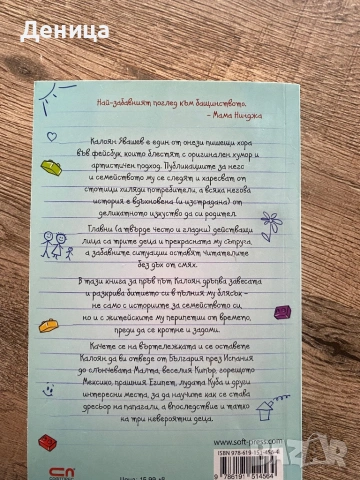 Деница
Най-забавният поглед към бащинството.
– Мама Нинджа
Калоян Явашев е един от онези пишещи хора
във фейсбук, които блестят с оригинален хумор и
артистичен подход. Публикациите за него
и семейството му се следят и харесват от
стотици хиляди потребители, а всяка негова
история е вдъхновена (и изстрадана) от
деликатното изкуство да си родител.
Главни (а твърде често и гладни) действащи
лица са трите деца и прекрасната му съпруга,
а забавните ситуации оставят читателите
без дъх от смях.
В тази книга за пръв път Калоян дръпва завесата
и разкрива битието си в пълния му блясък –
не само с историите за семейството си,
но и с житейските му перипетии от времето,
преди да се кротне и задоми.
Качете се на въртележката и се оставете
Калоян да ви отведе от България през Испания
до слънчевата Малта, веселия Кипър, горещото
Мексико, прашния Египет, лудата Куба и други
интересни места, за да научите как се става
дресьор на папагали, а впоследствие и татко
на три невероятни деца.
www.soft-press.com
ISBN 978-619-151-456-4
9 786191 514564
Цена: 16,99 лв.